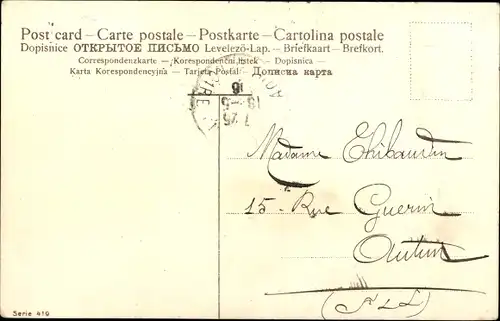 Post card – Carte postale – Postkarte – Cartolina postale
Dopisnice ОТКРЫТОЕ ПИСЬМО Levelező-Lap. – Briefkaart – Brefkort.
Correspondenzkarte – Korespondenční lístek – Dopisnica –
Karta Korespondencyjna – Tarjeta Postal – Дописна карта
18-5
7 25
Madame Thibaudin
15 - Rue Guerin
Autun
Serie 419